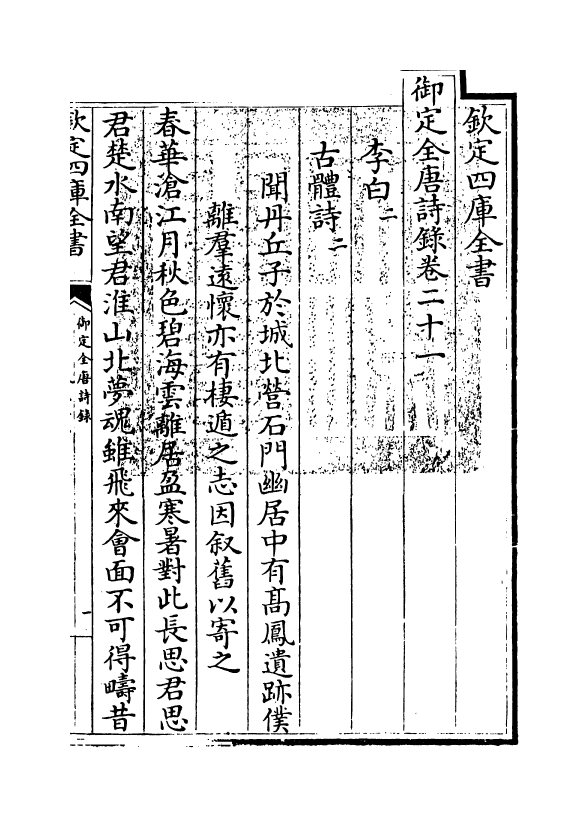 欽定四庫全書
御定全唐詩錄卷二十一
李白二
古體詩二
聞丹丘子於城北營石門幽居中有髙鳳遺跡僕
離羣逺懷亦有棲遁之志因叙舊以寄之
春華滄江月秋色碧海雲離居盈寒暑對此長思君思
君楚水南望君淮山北夢魂雖飛來會面不可得疇昔
欽定四庫全書
御定全唐詩錄
一